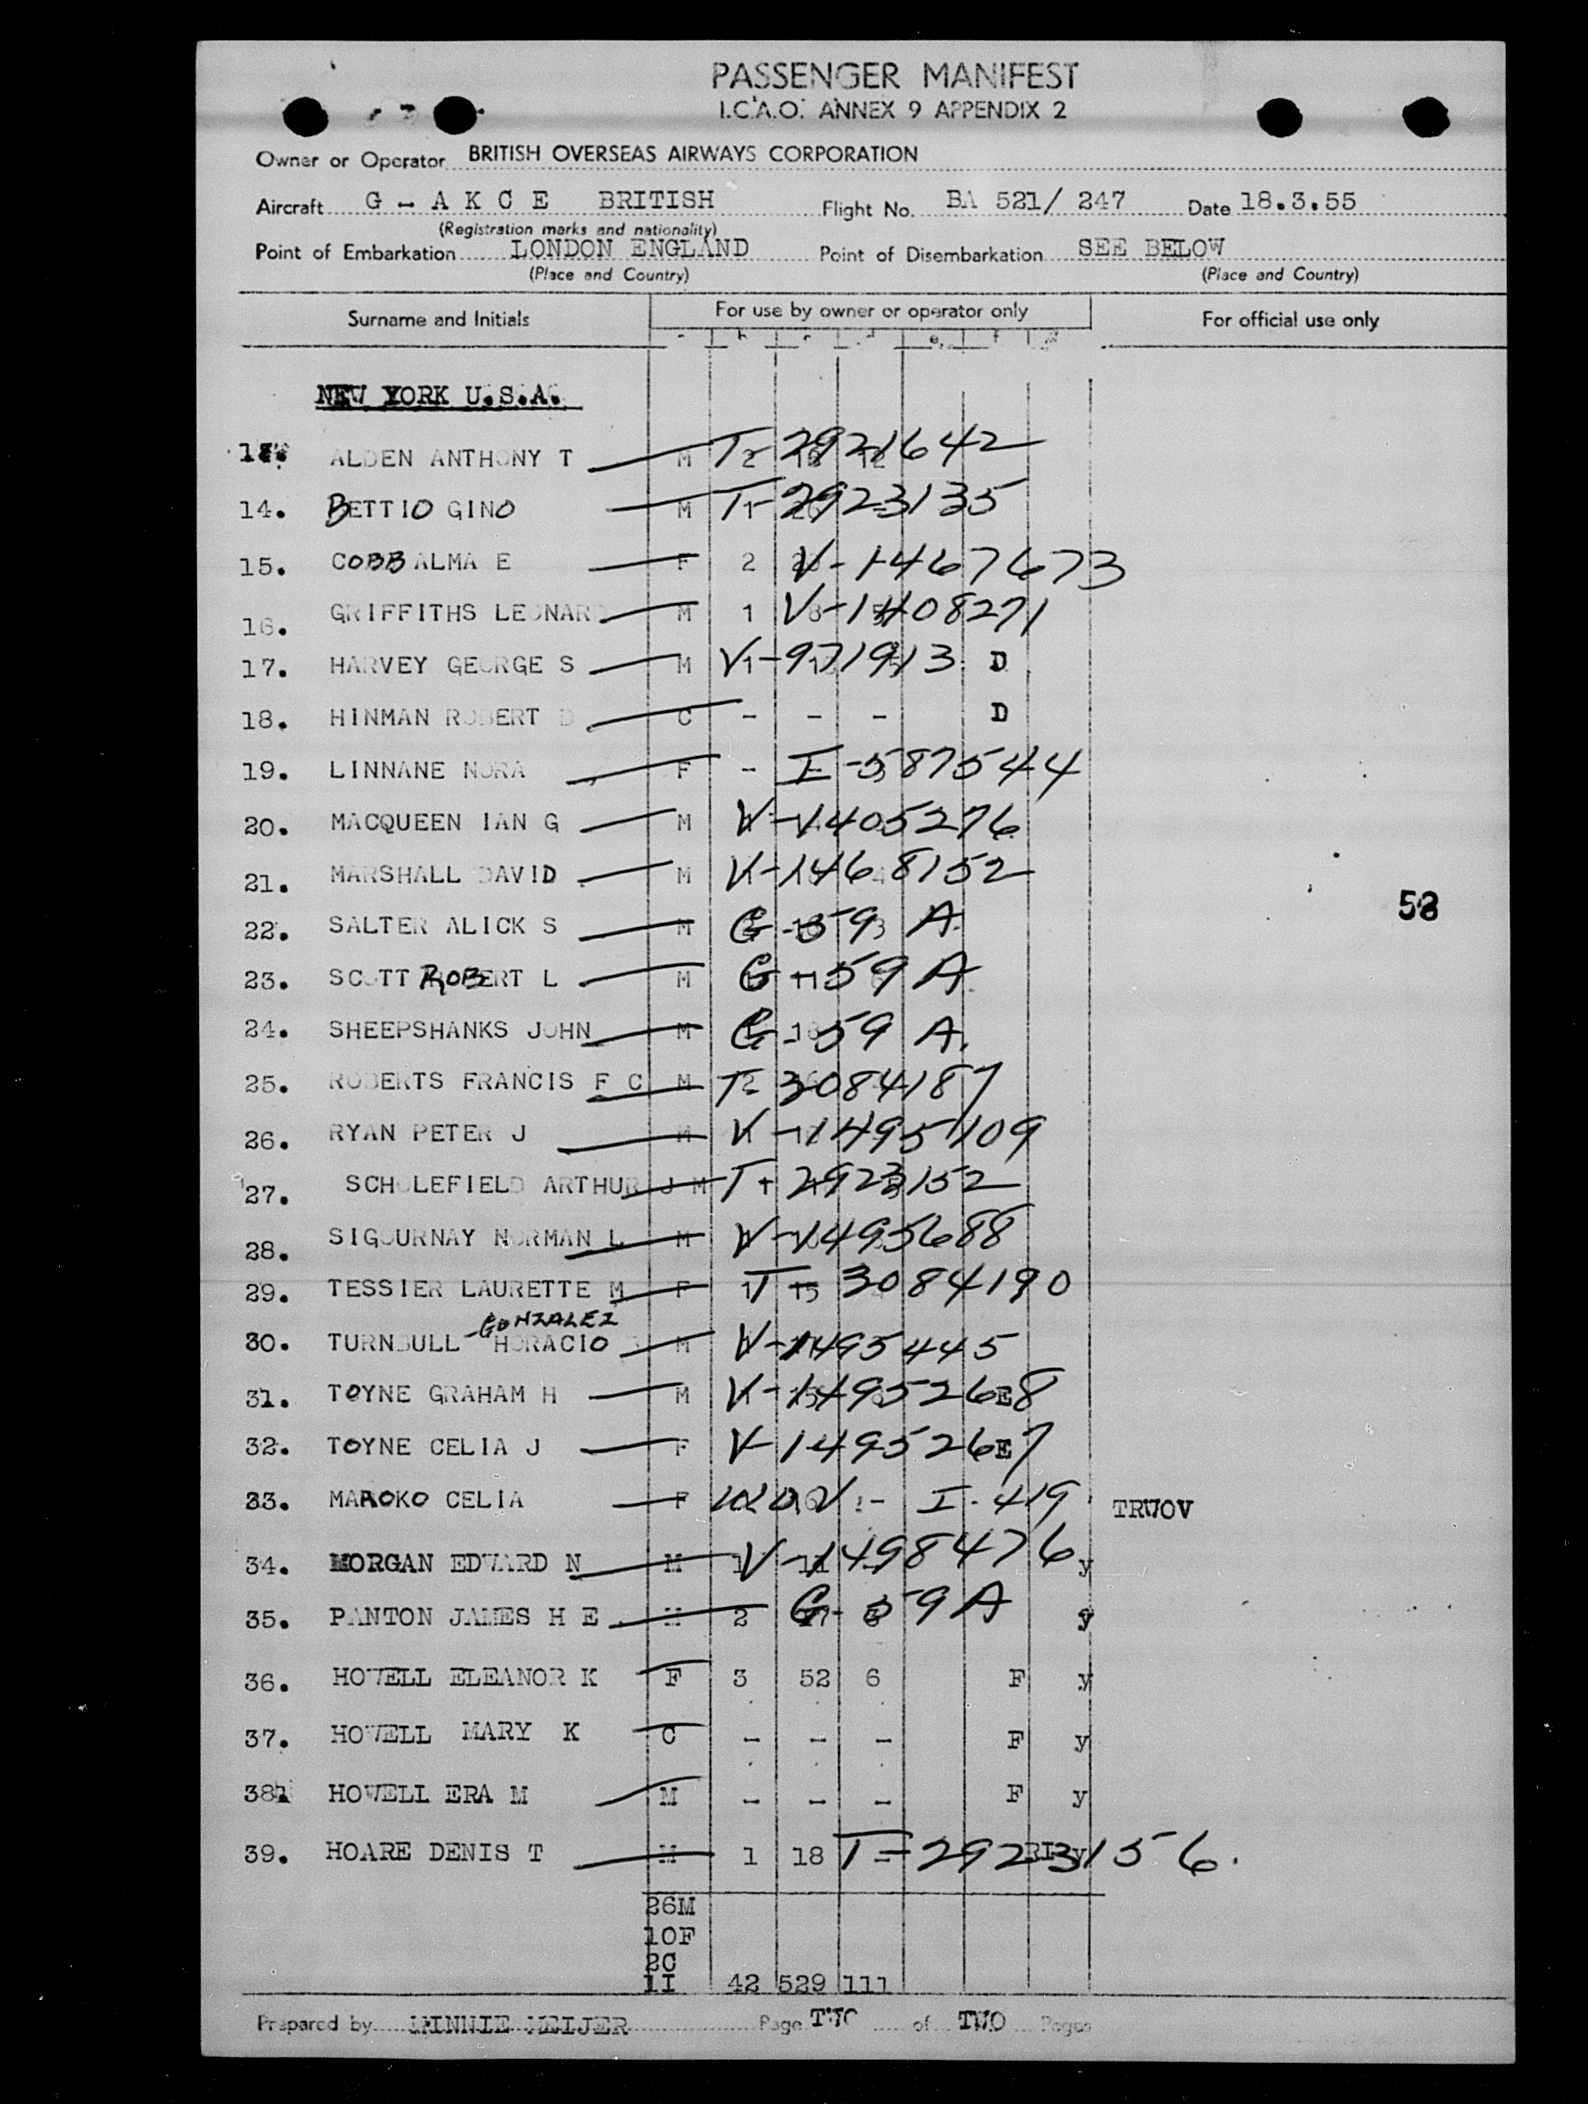 PASSENGER MANIFEST
I.C.A.O. ANNEX 9 APPENDIX 2
Owner or Operator BRITISH OVERSEAS AIRWAYS CORPORATION
Aircraft G - A K C E BRITISH Flight No. BA 521/ 247 Date 18.3.55
(Registration marks and nationality)
Point of Embarkation LONDON ENGLAND Point of Disembarkation SEE BELOW
(Place and Country) (Place and Country)
Surname and Initials For use by owner or operator only For official use only
NEW YORK U.S.A.
ALDEN ANTHONY T M T-2921642
14. BETTIO GINO M T-2923135
15. COBB ALMA E F 2 V-1467673
16. GRIFFITHS LEONARD M 1 V-1408271
17. HARVEY GEORGE S M V-971913 D
18. HINMAN ROBERT D C - - - D
19. LINNANE NORA F - I-587544
20. MACQUEEN IAN G M V-1405276
21. MARSHALL DAVID M V-1468152
58
22. SALTER ALICK S M G-59 A
23. SCOTT ROBERT L M G-59 A
24. SHEEPSHANKS JOHN M G-59 A.
25. ROBERTS FRANCIS F C M T-3084187
26. RYAN PETER J M V-1495109
27. SCHOLEFIELD ARTHUR J M T-2923152
28. SIGOURNAY NORMAN L M V-1495688
29. TESSIER LAURETTE M F T-3084190
GONZALEZ
30. TURNBULL HORACIO M V-1495445
31. TOYNE GRAHAM H M V-1495268 E
32. TOYNE CELIA J F V-1495267 E
33. MAROKO CELIA F I-419 TRWOV
34. MORGAN EDWARD N M 1 V-1498476 y
35. PANTON JAMES H E M 2 G-59 A y
36. HOWELL ELEANOR K F 3 52 6 F y
37. HOWELL MARY K C - - - F y
38 HOWELL ERA M M - - - F y
39. HOARE DENIS T M 1 18 T-2923156. y
26M
10F
2C
1I 42 529 111
Prepared by MINNIE MEIJER Page TWO of TWO Pages